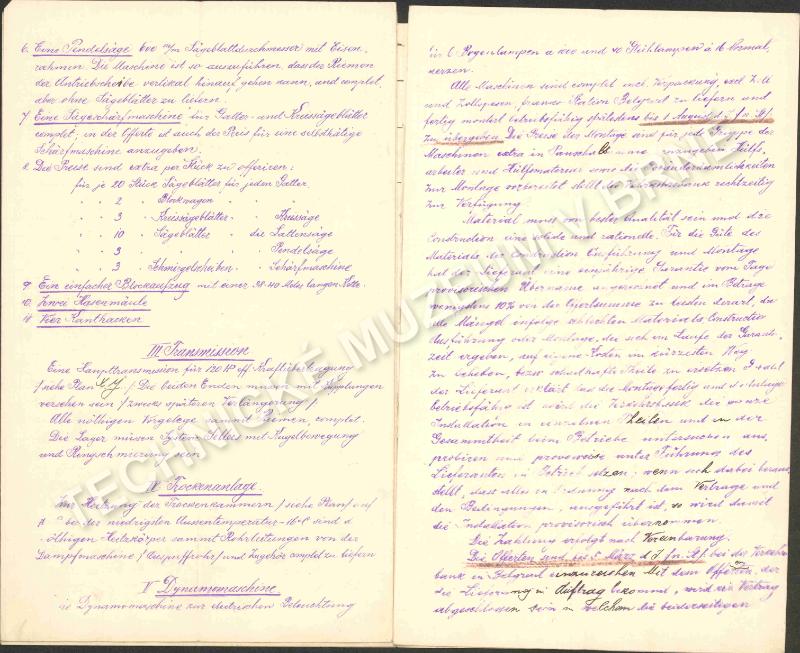 6. Eine Pendelsäge 600 m/m Sägeblattdurchmesser mit Eisen-
rahmen Die Maschine ist so auszuführen, dass der Riemen
der Antriebscheibe vertikal hinauf gehen kann, und complet,
aber ohne Sägeblätter zu liefern.
7. Eine Sägeschärfmaschine für Gatter- und Kreissägeblätter
complet, in der Offerte ist auch der Preis für eine selbsttätige
Schärfmaschine anzugeben.
8. Die Preise sind extra per Stück zu offeriren:
für je 20 Stück Sägeblätter für jeden Gatter
" " 2 " Blockwagen
" " 3 " Kreissägeblätter " Kreissäge
" " 10 " Sägeblätter " die Lattensäge
" " 3 " " Pendelsäge
" " 3 " Schmirgelscheiben " Schärfmaschine
9. Ein einfacher Blockaufzug mit einer 38-40 Meter langen Kette
10. Zwei Hasenmäule
11. Vier Kanthacken
III Transmission
Eine Haupttransmission für 120 HP eff. Kraftübertragung
/siehe Plan / Die beiden Enden müssen mit Kupplungen
versehen sein /zwecks späteren Verlängerung/,
Alle nöthigen Vorgelege sammt Riemen, complet.
Die Lager müssen System Sellers mit Kugelbewegung
und Ringschmierung sein
IV Trockenanlage.
Zur Heitzung der Trockenkammern /siehe Plan/ auf
° C bei der niedrigsten Aussentemperatur -16° C sind d
nöthigen Heizkörper sammt Rohrleitungen von der
Dampfmaschine /Auspuffrohr/ und Zugehör complet zu liefern
V Dynamomaschine
Dynamomaschine zur electrischen Beleuchtung
für 6 Bogenlampen a und 40 Glühlampen à 16 Normal-
kerzen.
Alle Maschinen sind complet incl. Verpackung, excl. Z.
und Zollspesen, franco Station Belgrad zu liefern und
fertig montirt betriebsfähig spätestens bis 1 August d. J. /n. St/
zu übergeben. Die Preise der Montage sind für jede Gruppe der
Maschinen extra in Pauschale anzugeben Hilfs-
arbeiter und Hülfsmaterial sowie die
zur Montage vorbereitet stellt die Verkehrsbank rechtzeitig
zur Verfügung
Material muss von bester Qualität sein und die
Construction eine solide und rationelle. Für die Güte des
Materials der Construction Ausführung und Montage
hat der Lieferant eine einjährige Garantie vom Tage
provisorischen Übernahme angerechnet und im Betrage
wenigstens 10% von der Offertsumme zu leisten derart, da
alle Mängel infolge schlechten Materials Constructio
Ausführung oder Montage, die sich im Laufe der Garantie-
zeit ergeben, auf eigene Kosten im kürzesten Weg
zu beheben, bezw. schadhafte Theile zu ersetzen
der Lieferant erklärt dass die Montage fertig und die Anlage
betriebsfähig ist, wird die Verkehrsbank die ganze
Installation in einzelnen Theilen und in der
Gesammtheit beim Betriebe untersuchen aus-
probiren und probeweise unter Führung des
Lieferanten in Betrieb setzen; wenn sich dabei heraus-
stellt, dass alles in Ordnung nach dem Vertrage und
den Bedingungen, ausgeführt ist, so wird damit
die Installation provisorisch übernommen.
Die Zahlung erfolgt nach Vereinbarung.
Die Offerten sind bis 5. März d. J. /n. St/ bei der Verkehrs-
bank in Belgrad einzureichen Mit dem Offerten, der
die Lieferung in Auftrag bekommt, wird ein Vertrag
abgeschlossen sein in welchem die beiderseitigen
TECHNICKÉ MUZEUM V BRNĚ